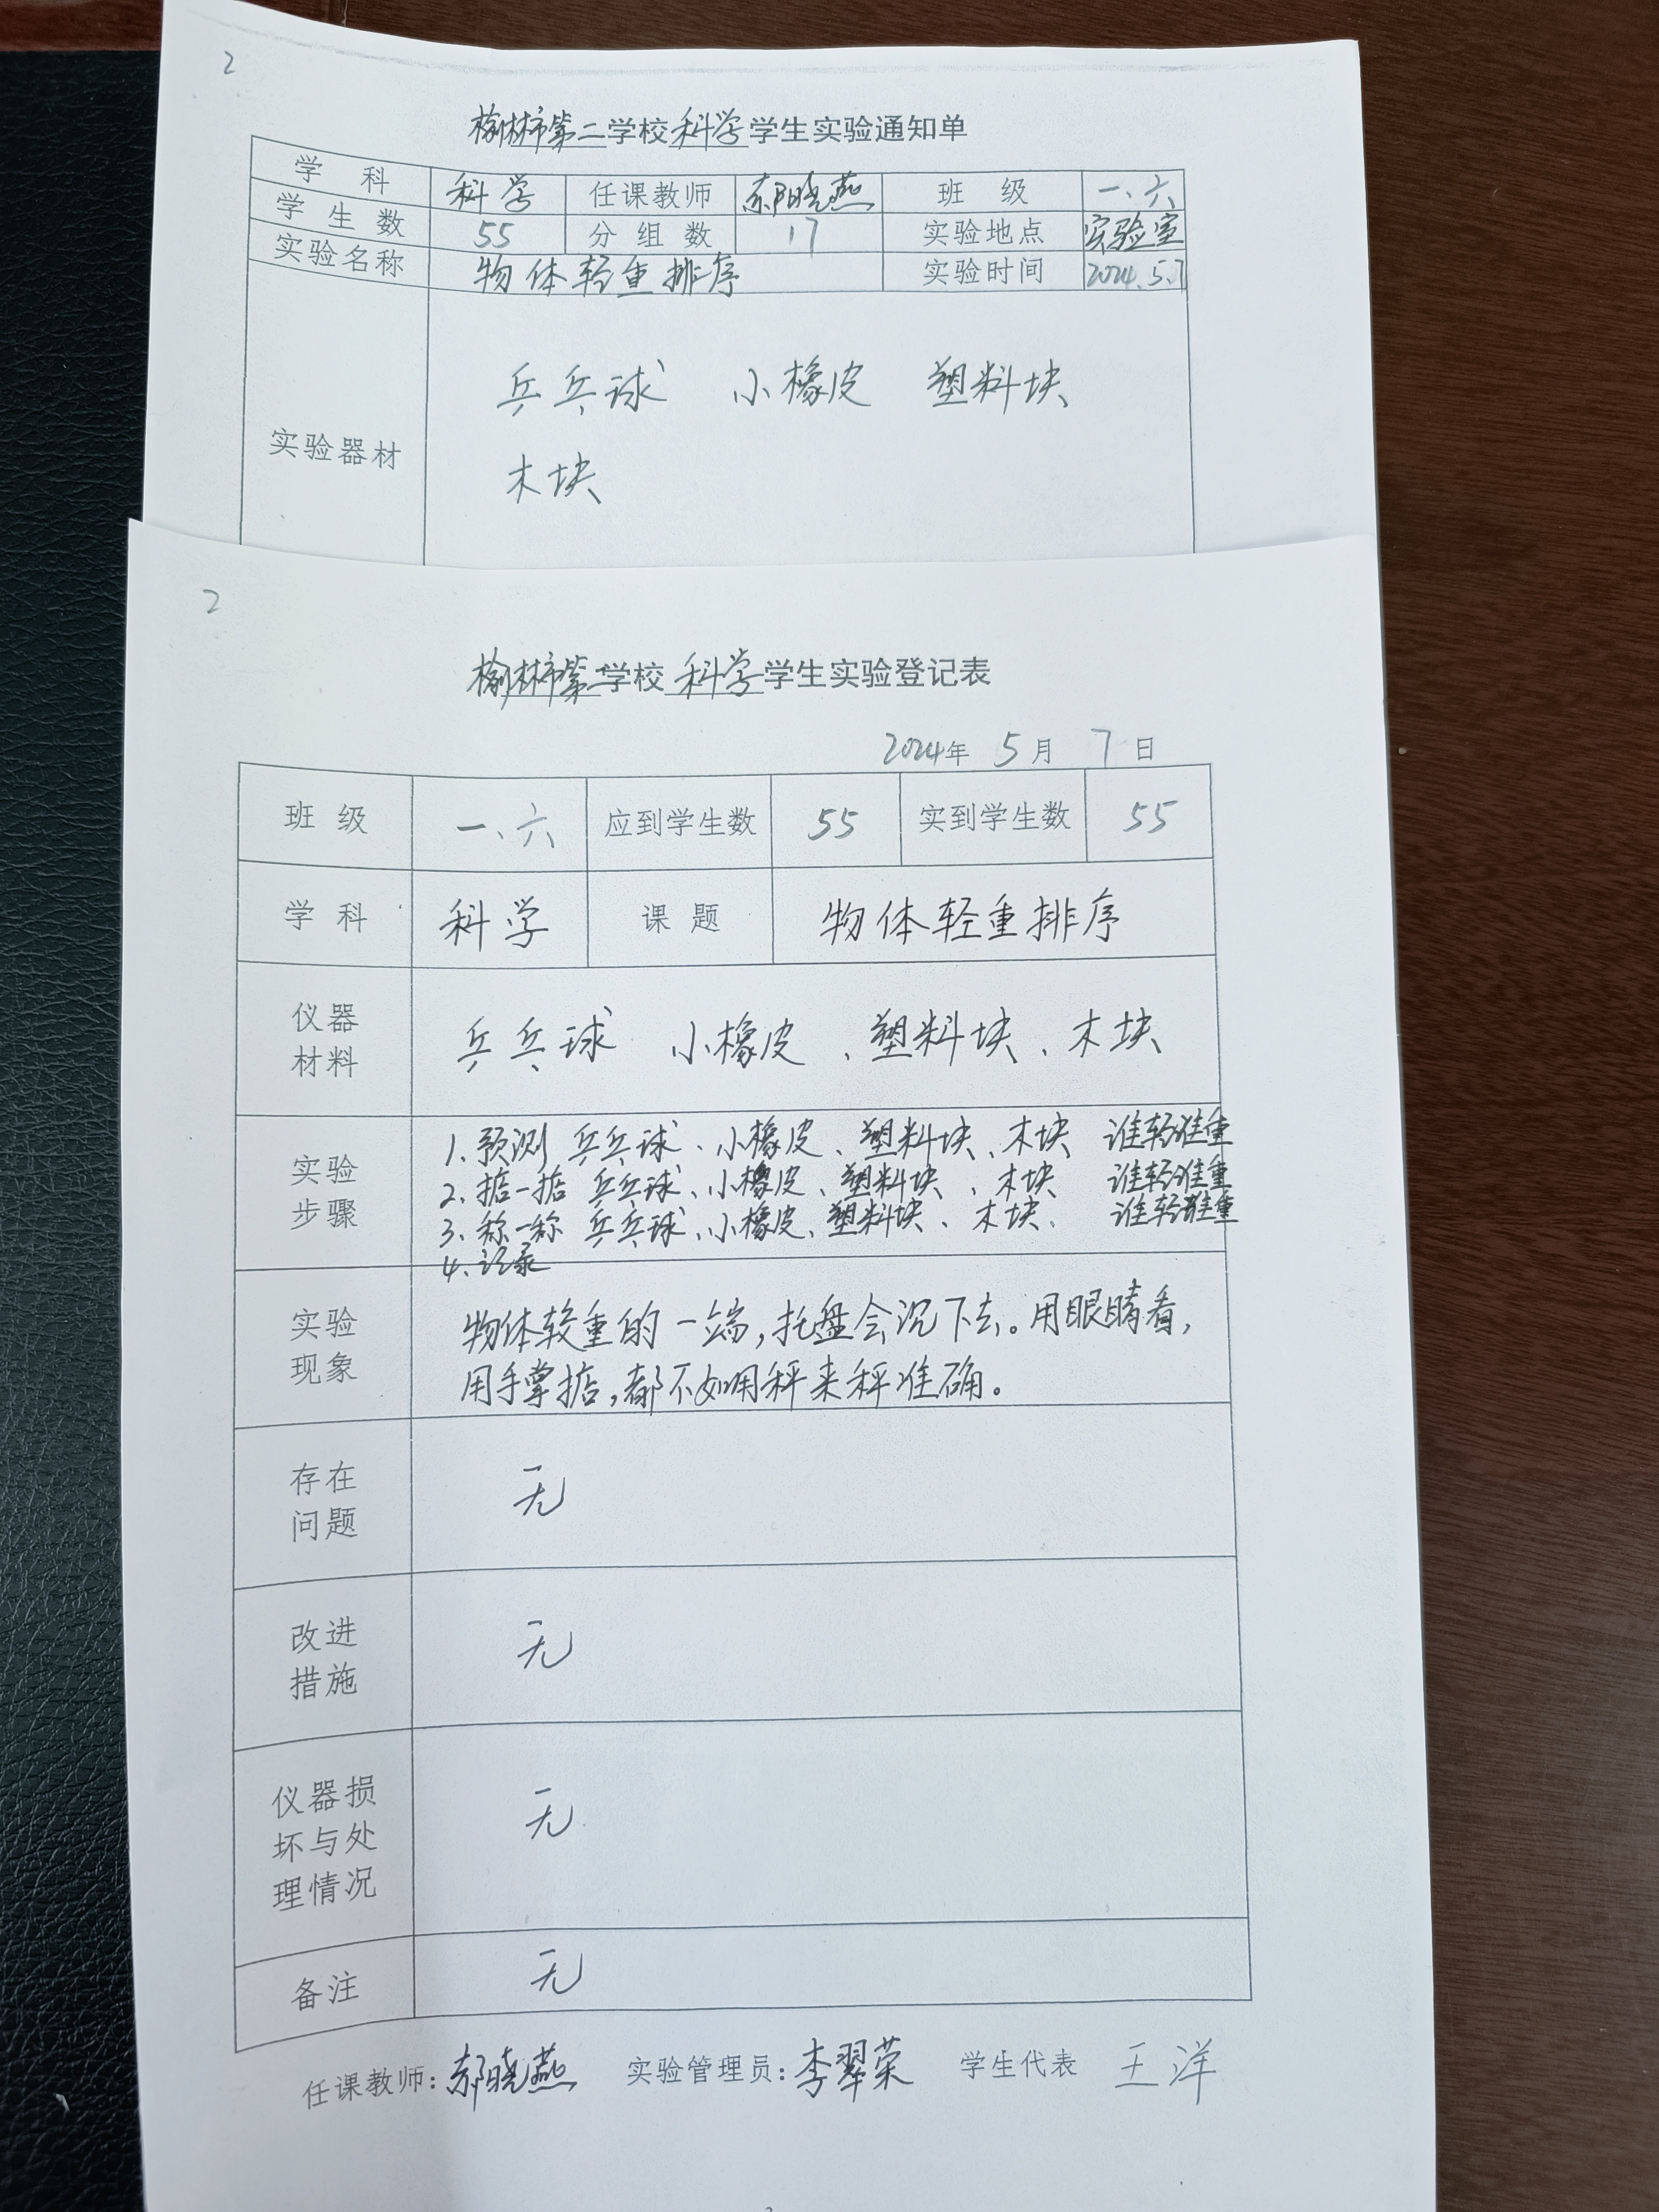 2
榆林市第二学校科学学生实验通知单
学 科 科学 任课教师 郝晓燕 班 级 一、六
学 生 数 55 分 组 数 17 实验地点 实验室
实验名称 物体轻重排序 实验时间 2024.5.7
乒乓球 小橡皮 塑料块
实验器材
木块
2
榆林市第二学校 科学 学生实验登记表
2024年 5月 7日
班 级 一、六 应到学生数 55 实到学生数 55
学 科 科学 课 题 物体轻重排序
仪器
材料
乒乓球 小橡皮、塑料块、木块
实验
步骤
1.预测 乒乓球、小橡皮、塑料块、木块 谁轻谁重
2.掂一掂 乒乓球、小橡皮、塑料块、木块 谁轻谁重
3.称一称 乒乓球、小橡皮、塑料块、木块、 谁轻谁重
4.记录
实验
现象
物体较重的一端,托盘会沉下去。用眼睛看,
用手掌掂,都不如用秤来秤准确。
存在
问题
无
改进
措施
无
仪器损
坏与处
理情况
无
备注 无
任课教师:郝晓燕 实验管理员:李翠荣 学生代表 王洋